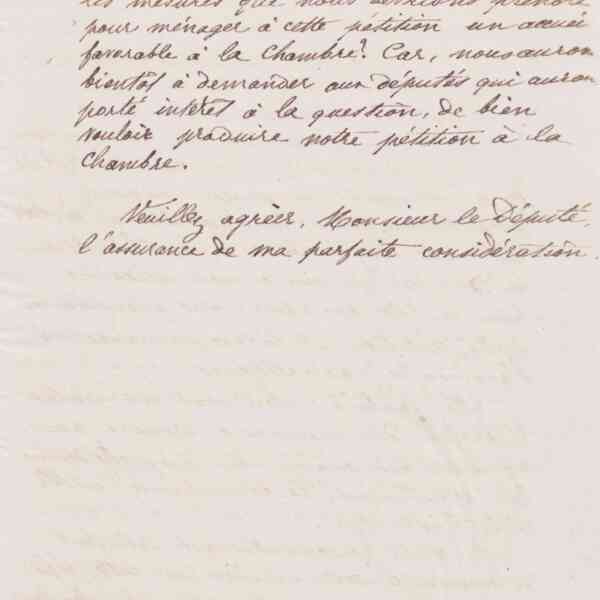 les mesures que nous devrions prendre
pour ménager à cette pétition un accuei
favorable à la Chambre? Car, nous auron
bientôt à demander aux députés qui auron
porté intérêt à la question, de bien
vouloir produire notre pétition à la
Chambre.
Veuillez agréer, Monsieur le Député,
l'assurance de ma parfaite considération.